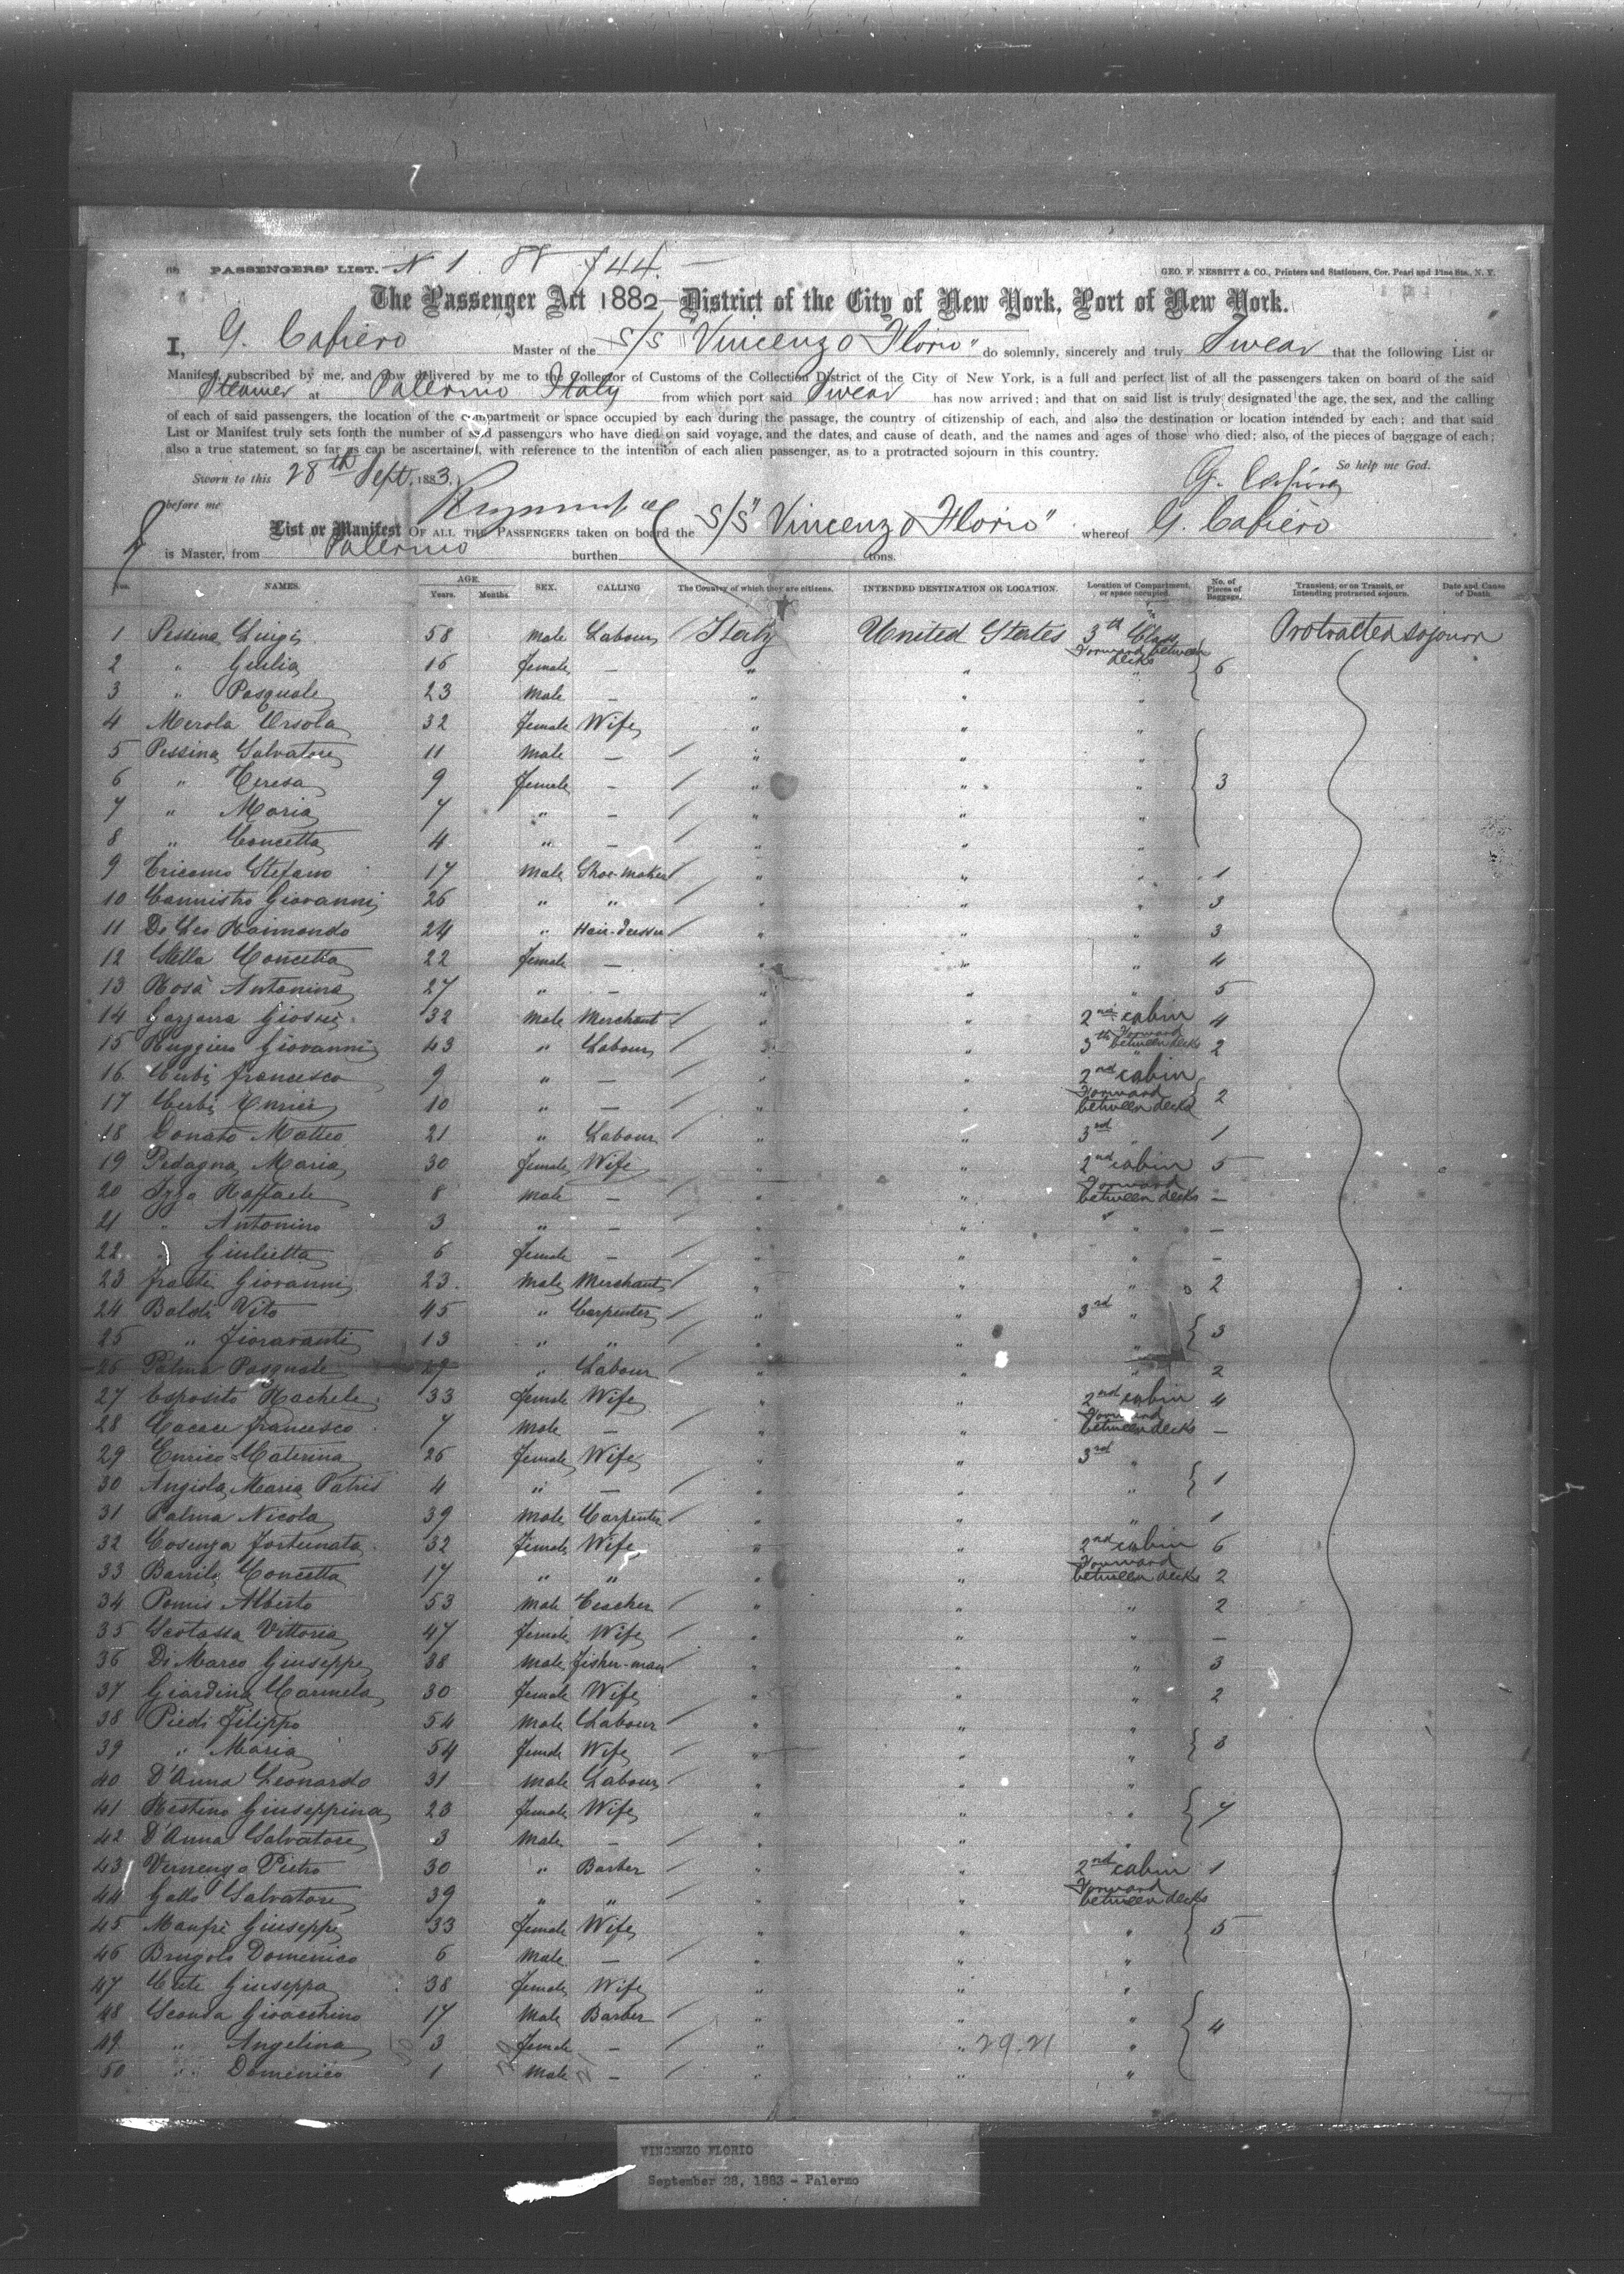 PASSENGERS' LIST. N 1 744.
GEO. F. NESBITT & CO., Printers and Stationers, Cor. Pearl and Pine Sts., N. Y.
The Passenger Act 1882 District of the City of New York, Port of New York.
I, G. Cafiero Master of the S/S "Vincenzo Florio" do solemnly, sincerely and truly Swear that the following List or
Manifest, subscribed by me, and now delivered by me to the Collector of Customs of the Collection District of the City of New York, is a full and perfect list of all the passengers taken on board of the said
Steamer at Palermo Italy from which port said Swear has now arrived; and that on said list is truly designated the age, the sex, and the calling
of each of said passengers, the location of the compartment or space occupied by each during the passage, the country of citizenship of each, and also the destination or location intended by each; and that said
List or Manifest truly sets forth the number of said passengers who have died on said voyage, and the dates, and cause of death, and the names and ages of those who died; also, of the pieces of baggage of each;
also a true statement, so far as can be ascertained, with reference to the intention of each alien passenger, as to a protracted sojourn in this country.
So help me God.
Sworn to this 28th Sept. 1883. G. Cafiero
before me
List or Manifest OF ALL THE PASSENGERS taken on board the S/S "Vincenzo Florio" whereof G. Cafiero
is Master, from Palermo burthen tons.
Nos. NAMES. AGE. Years. Months. SEX. CALLING The Country of which they are citizens. INTENDED DESTINATION OR LOCATION. Location of Compartment, or space occupied. No. of Pieces of Baggage. Transient, or on Transit, or Intending protracted sojourn. Date and Cause of Death.
1 Pessina Luigi 58 male Labour Italy United States 3th Class Protracted sojourn
2 " Giulia 16 female — " " Forward between decks 6
3 " Pasquale 23 male — " " "
4 Merola Ursola 32 female Wife " " "
5 Pessina Salvatore 11 male — " " "
6 " Teresa 9 female — " " " 3
7 " Maria 7 " — " " "
8 " Concetta 4 " — " " "
9 Tricomo Stefano 17 male Shoe-maker " " " 1
10 Cannistro Giovanni 26 " " " " " 3
11 De Leo Raimondo 24 " Hair-dresser " " " 3
12 Stella Concetta 22 female — " " " 4
13 Rosa Antonina 27 " — " " " 5
14 Gazzara Giosue 32 male Merchant " " 2nd cabin 4
15 Ruggiero Giovanni 43 " Labour " " 3th Forward between decks 2
16 Curbi Francesco 9 " — " " 2nd cabin
17 Curbi Enrico 10 " — " " Forward between decks 2
18 Donato Matteo 21 " Labour " " 3rd " 1
19 Pedagna Maria 30 female Wife " " 2nd cabin 5
20 Izzo Raffaele 8 male — " " Forward between decks —
21 " Antonino 3 " — " " " —
22 " Giulietta 6 female — " " " —
23 Giovanni 23 male Merchant " " " 2
24 Baldi Vito 45 " Carpenter " " 3rd "
25 " Fioravanti 13 " " " " " 3
26 Palma Pasquale 29 " Labour " " " 2
27 Esposito Rachele 33 female Wife " " 2nd cabin 4
28 Cacace Francesco 7 male — " " Forward between decks —
29 Enrico Caterina 26 female Wife " " 3rd "
30 Angiola Maria Patris 4 " — " " " 1
31 Palma Nicola 39 male Carpenter " " " 1
32 Cosenza Fortunata 32 female Wife " " 2nd cabin 6
33 Barrile Concetta 17 " " " " Forward between decks 2
34 Pomis Alberto 53 male Teacher " " " 2
35 Scotassa Vittoria 47 female Wife " " " —
36 Di Marco Giuseppe 38 male Fisher-man " " " 3
37 Giardina Carmela 30 female Wife " " " 2
38 Piedi Filippo 54 male Labour " " "
39 " Maria 54 female Wife " " " 3
40 D'Anna Leonardo 31 male Labour " " "
41 Restino Giuseppina 23 female Wife " " " 7
42 D'Anna Salvatore 3 male — " " "
43 Vernengo Pietro 30 " Barber " " 2nd cabin 1
44 Gallo Salvatore 39 " " " " Forward between decks
45 Manfrè Giuseppe 33 female Wife " " " 5
46 Brugolo Domenico 6 male — " " "
47 Cute Giuseppa 38 female Wife " " "
48 Sconda Gioacchino 17 male Barber " " "
49 " Angelina 3 female — " " 29.21 " 4
50 " Domenico 1 male — " " "
VINCENZO FLORIO
September 28, 1883 - Palermo